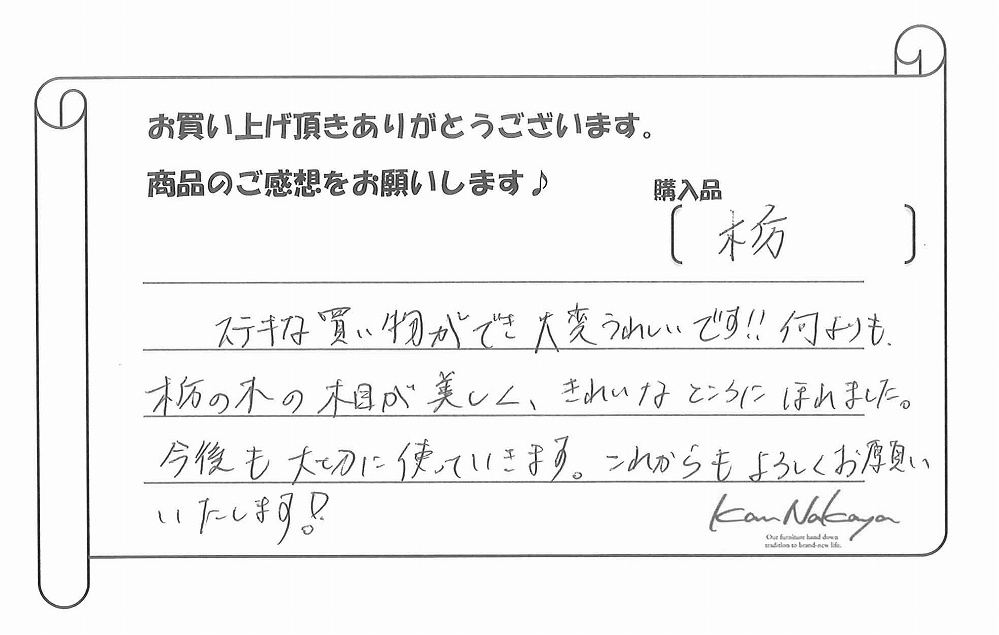 お買い上げ頂きありがとうございます。
商品のご感想をお願いします♪
購入品
栃
ステキな買い物ができ大変うれしいです!!何よりも、
栃の木の木目が美しく、きれいなところにほれました。
今後も大切に使っていきます。これからもよろしくお願い
いたします!
Kan Nakaya
Our furniture hand down
tradition to brand-new life.